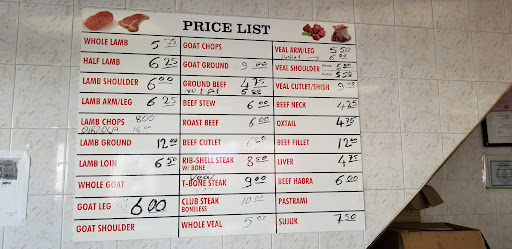 PRICE LIST
WHOLE LAMB 5.75
HALF LAMB 6.25
LAMB SHOULDER 6.00
LAMB ARM/LEG 6.25
LAMB CHOPS 8.00
LAMB GROUND 12.00
LAMB LOIN 6.50
WHOLE GOAT
GOAT LEG 6.00
GOAT SHOULDER
GOAT CHOPS
GOAT GROUND 9.00
GROUND BEEF 4.75
No Fat 5.50
BEEF STEW 6.00
ROAST BEEF 6.00
BEEF CUTLET 6.00
RIB-SHELL STEAK 8.50
W/ BONE
Veal
T-BONE STEAK 9.00
CLUB STEAK 10.00
BONELESS
WHOLE VEAL 5.00
VEAL ARM/LEG 5.50
6.00
VEAL SHOULDER 5.00
5.50
VEAL CUTLET/SHISH 9.50
BEEF NECK 4.25
OXTAIL 4.75
BEEF FILLET 12.00
LIVER 4.25
BEEF HABRA 6.00
PASTRAMI
SUJUK 7.50